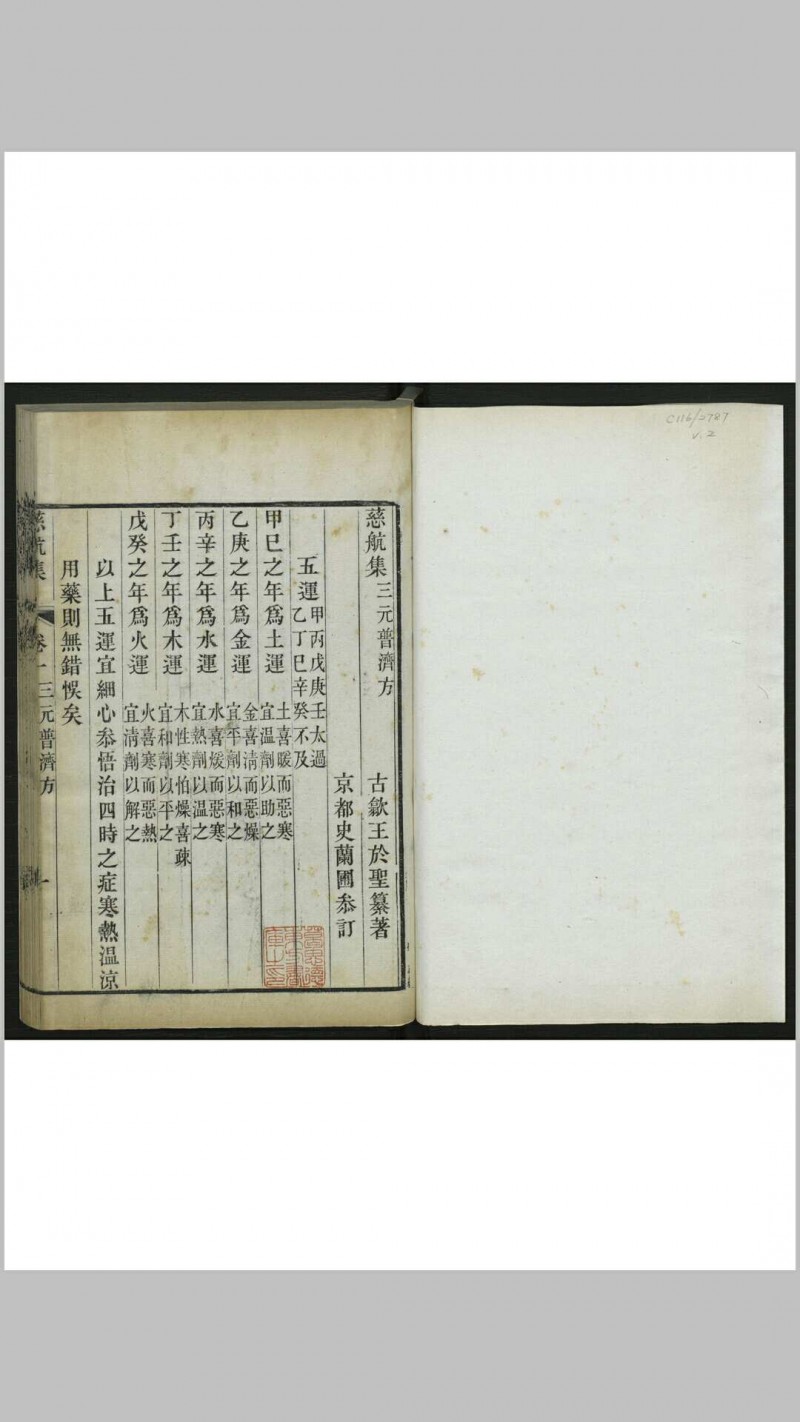 C116/2787
v.2
慈航集三元普濟方
古歙王於聖纂著
京都史蘭圃叅訂
五運 甲丙戊庚壬太過
乙丁巳辛癸不及
甲巳之年爲土運 土喜暖而惡寒
宜温劑以助之
乙庚之年爲金運 金喜清而惡燥
宜平劑以和之
丙辛之年爲水運 水喜煖而惡寒
宜熱劑以温之
丁壬之年爲木運 木性寒怕燥喜疎
宜和劑以平之
戊癸之年爲火運 火喜寒而惡熱
宜清劑以解之
以上五運宜細心叅悟治四時之症寒熱温涼
用藥則無錯悞矣
慈航集 卷一三元普濟方 一